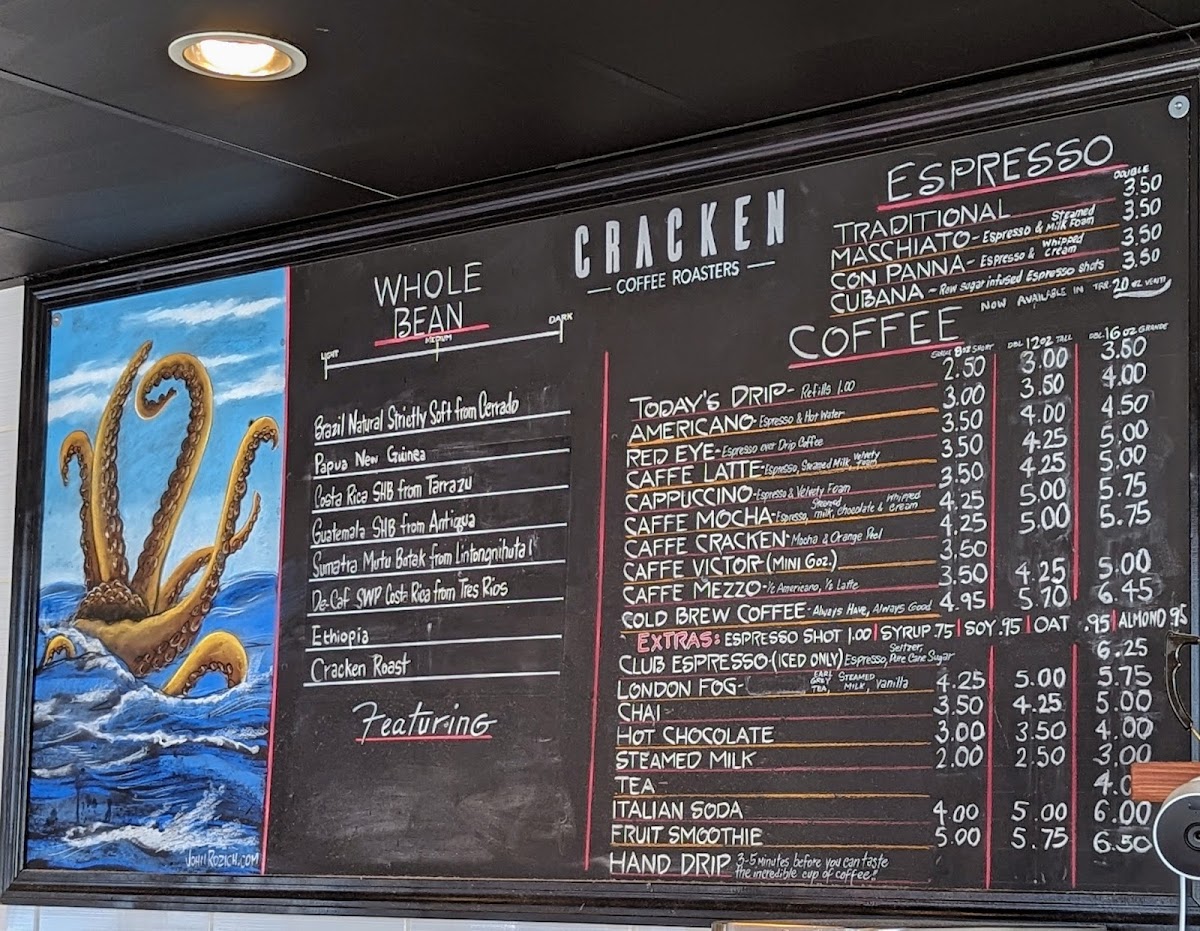 WHOLE
BEAN
LIGHT MEDIUM DARK
Brazil Natural Strictly Soft from Cerrado
Papua New Guinea
Costa Rica SHB from Tarrazu
Guatemala SHB from Antigua
Sumatra Mutu Batak from Lintongnihuta
De-Caf SWP Costa Rica from Tres Rios
Ethiopia
Cracken Roast
Featuring
JOHNROZICH.COM
CRACKEN
COFFEE ROASTERS
ESPRESSO
DOUBLE
TRADITIONAL 3.50
MACCHIATO - Espresso & Steamed Milk Foam 3.50
CON PANNA - Espresso & Whipped Cream 3.50
CUBANA - Raw sugar infused Espresso shots 3.50
NOW AVAILABLE IN TRP. 20 OZ VENTI
COFFEE
8 OZ SHORT DBL 12 OZ TALL DBL 16 OZ GRANDE
TODAY'S DRIP - Refills 1.00 2.50 3.00 3.50
AMERICANO - Espresso & Hot Water 3.00 3.50 4.00
RED EYE - Espresso over Drip Coffee 3.50 4.00 4.50
CAFFE LATTE - Espresso, Steamed Milk, Velvety Foam 3.50 4.25 5.00
CAPPUCCINO - Espresso & Velvety Foam 3.50 4.25 5.00
CAFFE MOCHA - Espresso, Steamed milk, chocolate & Whipped cream 4.25 5.00 5.75
CAFFE CRACKEN - Mocha & Orange Peel 4.25 5.00 5.75
CAFFE VICTOR (MINI 6oz.) 3.50
CAFFE MEZZO - ½ Americano, ½ Latte 3.50 4.25 5.00
COLD BREW COFFEE - Always Have, Always Good 4.95 5.70 6.45
EXTRAS: ESPRESSO SHOT 1.00 | SYRUP .75 | SOY .95 | OAT .95 | ALMOND .95
CLUB ESPRESSO - (ICED ONLY) Espresso, Seltzer, Pure Cane Sugar 6.25
LONDON FOG - EARL GREY TEA, STEAMED MILK, Vanilla 4.25 5.00 5.75
CHAI - 3.50 4.25 5.00
HOT CHOCOLATE 3.00 3.50 4.00
STEAMED MILK 2.00 2.50 3.00
TEA -
ITALIAN SODA 4.00 5.00 6.00
FRUIT SMOOTHIE 5.00 5.75 6.50
HAND DRIP 3-5 Minutes before you can taste
the incredible cup of coffee!!